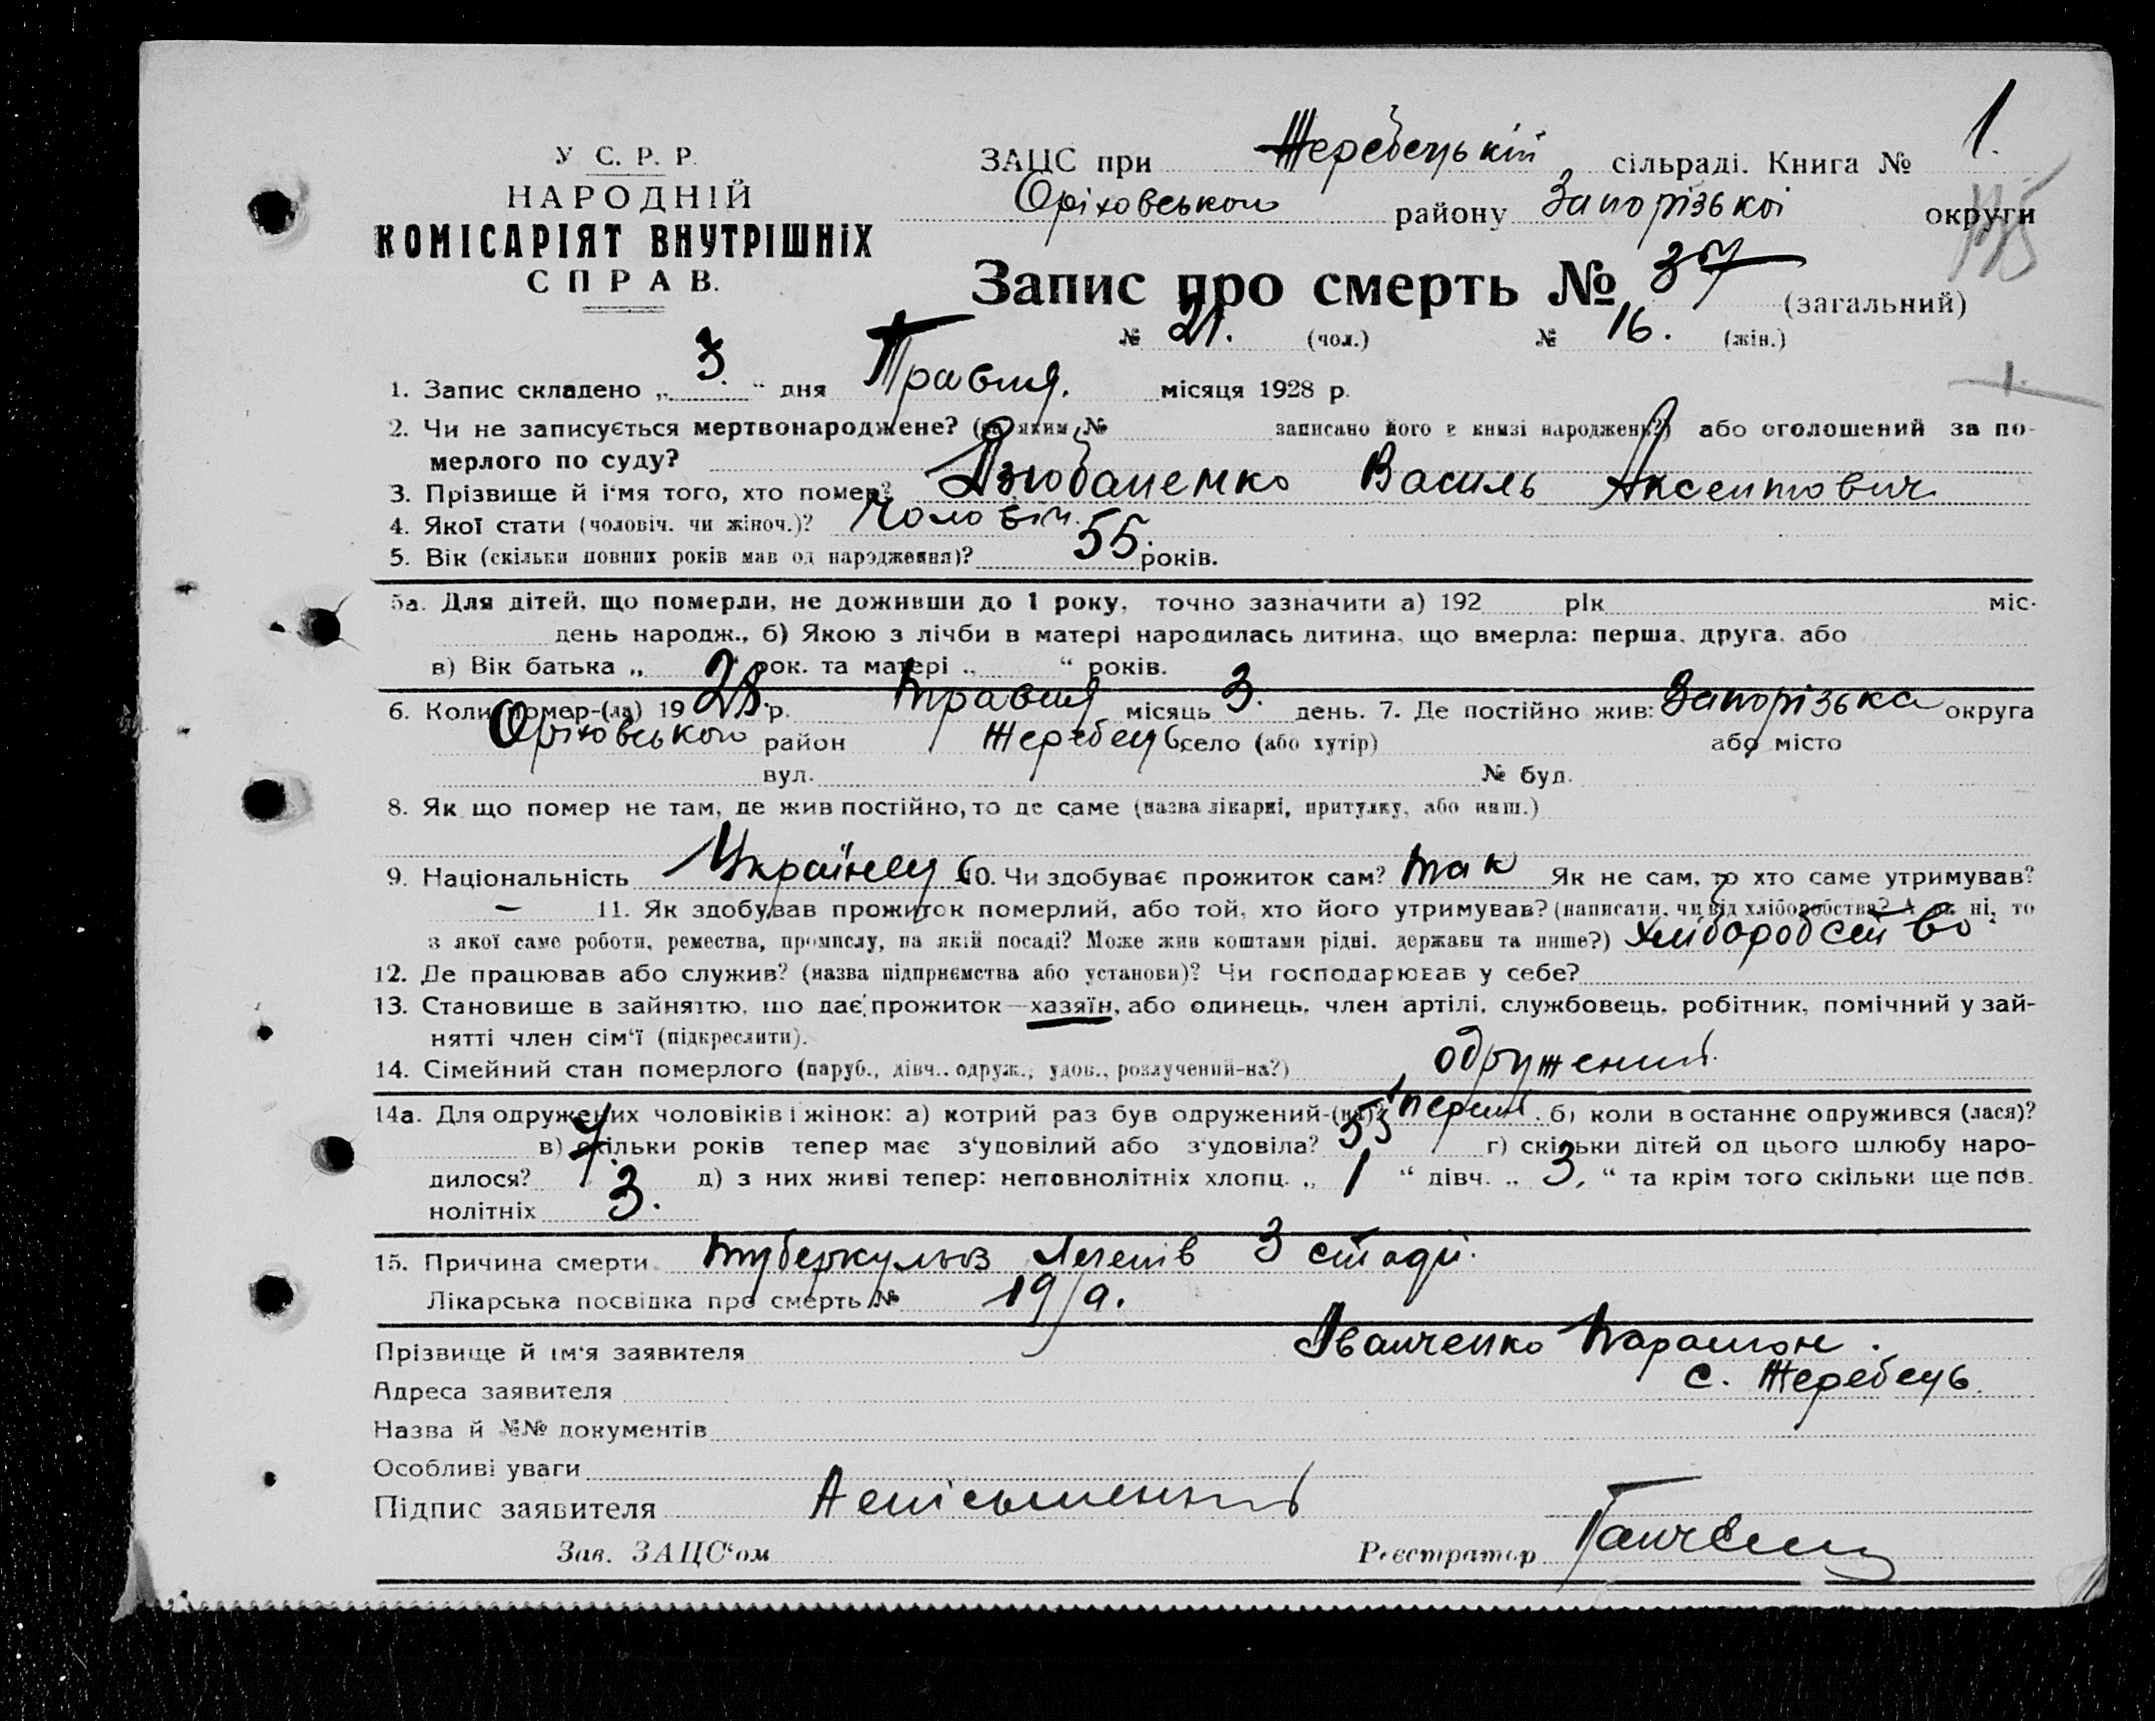 У С. Р. Р.
НАРОДНІЙ
КОМІСАРІЯТ ВНУТРІШНІХ
СПРАВ.
ЗАЦС при Жеребецькій сільраді. Книга № 1.
Оріховського району Запорізької округи
Запис про смерть № 37 (загальний)
№ 21. (чол.) № 16. (жін.)
1. Запис складено „ 3. “ дня Травня. місяця 1928 р.
1.
2. Чи не записується мертвонароджене? (за яким № записано його в книзі народжень?) або оголошений за по-
мерлого по суду?
3. Прізвище й і'мя того, хто помер? Дзюбаненко Василь Аксентович
4. Якої стати (чоловіч. чи жіноч.)? Чоловіч.
5. Вік (скільки повних років мав од народження)? 55. років.
5а. Для дітей, що померли, не доживши до 1 року, точно зазначити а) 192 рік міс.
день народж., б) Якою з лічби в матері народилась дитина, що вмерла: перша, друга, або
в) Вік батька „ “ рок. та матері „ “ років.
6. Коли помер-(ла) 19 28. р. травня місяць 3. день. 7. Де постійно жив: Запорізька округа
Оріховського район Жеребець село (або хутір) або місто
вул. № буд.
8. Як що помер не там, де жив постійно, то де саме (назва лікарні, притулку, або инш.)
9. Національність Українець 10. Чи здобуває прожиток сам? так Як не сам, то хто саме утримував?
— 11. Як здобував прожиток померлий, або той, хто його утримував? (написати, чи від хліборобства? А як ні, то
з якої саме роботи, ремества, промислу, на якій посаді? Може жив коштами рідні, держави та инше?) хліборобство.
12. Де працював або служив? (назва підприємства або установи)? Чи господарював у себе?
13. Становище в зайнятю, що дає прожиток—хазяїн, або одинець, член артілі, службовець, робітник, помічний у зай-
нятті член сім'ї (підкреслити).
14. Сімейний стан померлого (паруб., дівч., одруж., удов., розлучений-на?) одружений.
14а. Для одружених чоловіків і жінок: а) котрий раз був одружений-(на)? перший. б) коли востаннє одружився (лася)?
в) скільки років тепер має з'удовілий або з'удовіла? 53 г) скільки дітей од цього шлюбу наро-
дилося? 7. д) з них живі тепер: неповнолітніх хлопц. „ 1 “ дівч. „ 3. “ та крім того скільки ще пов.
нолітніх 3.
15. Причина смерти туберкульоз легенів 3 стадії.
Лікарська посвідка про смерть № 19/а.
Прізвище й ім'я заявителя Іванченко Парамон.
Адреса заявителя с. Жеребець.
Назва й №№ документів
Особливі уваги
Підпис заявителя
Зав. ЗАЦС'ом Реєстратор